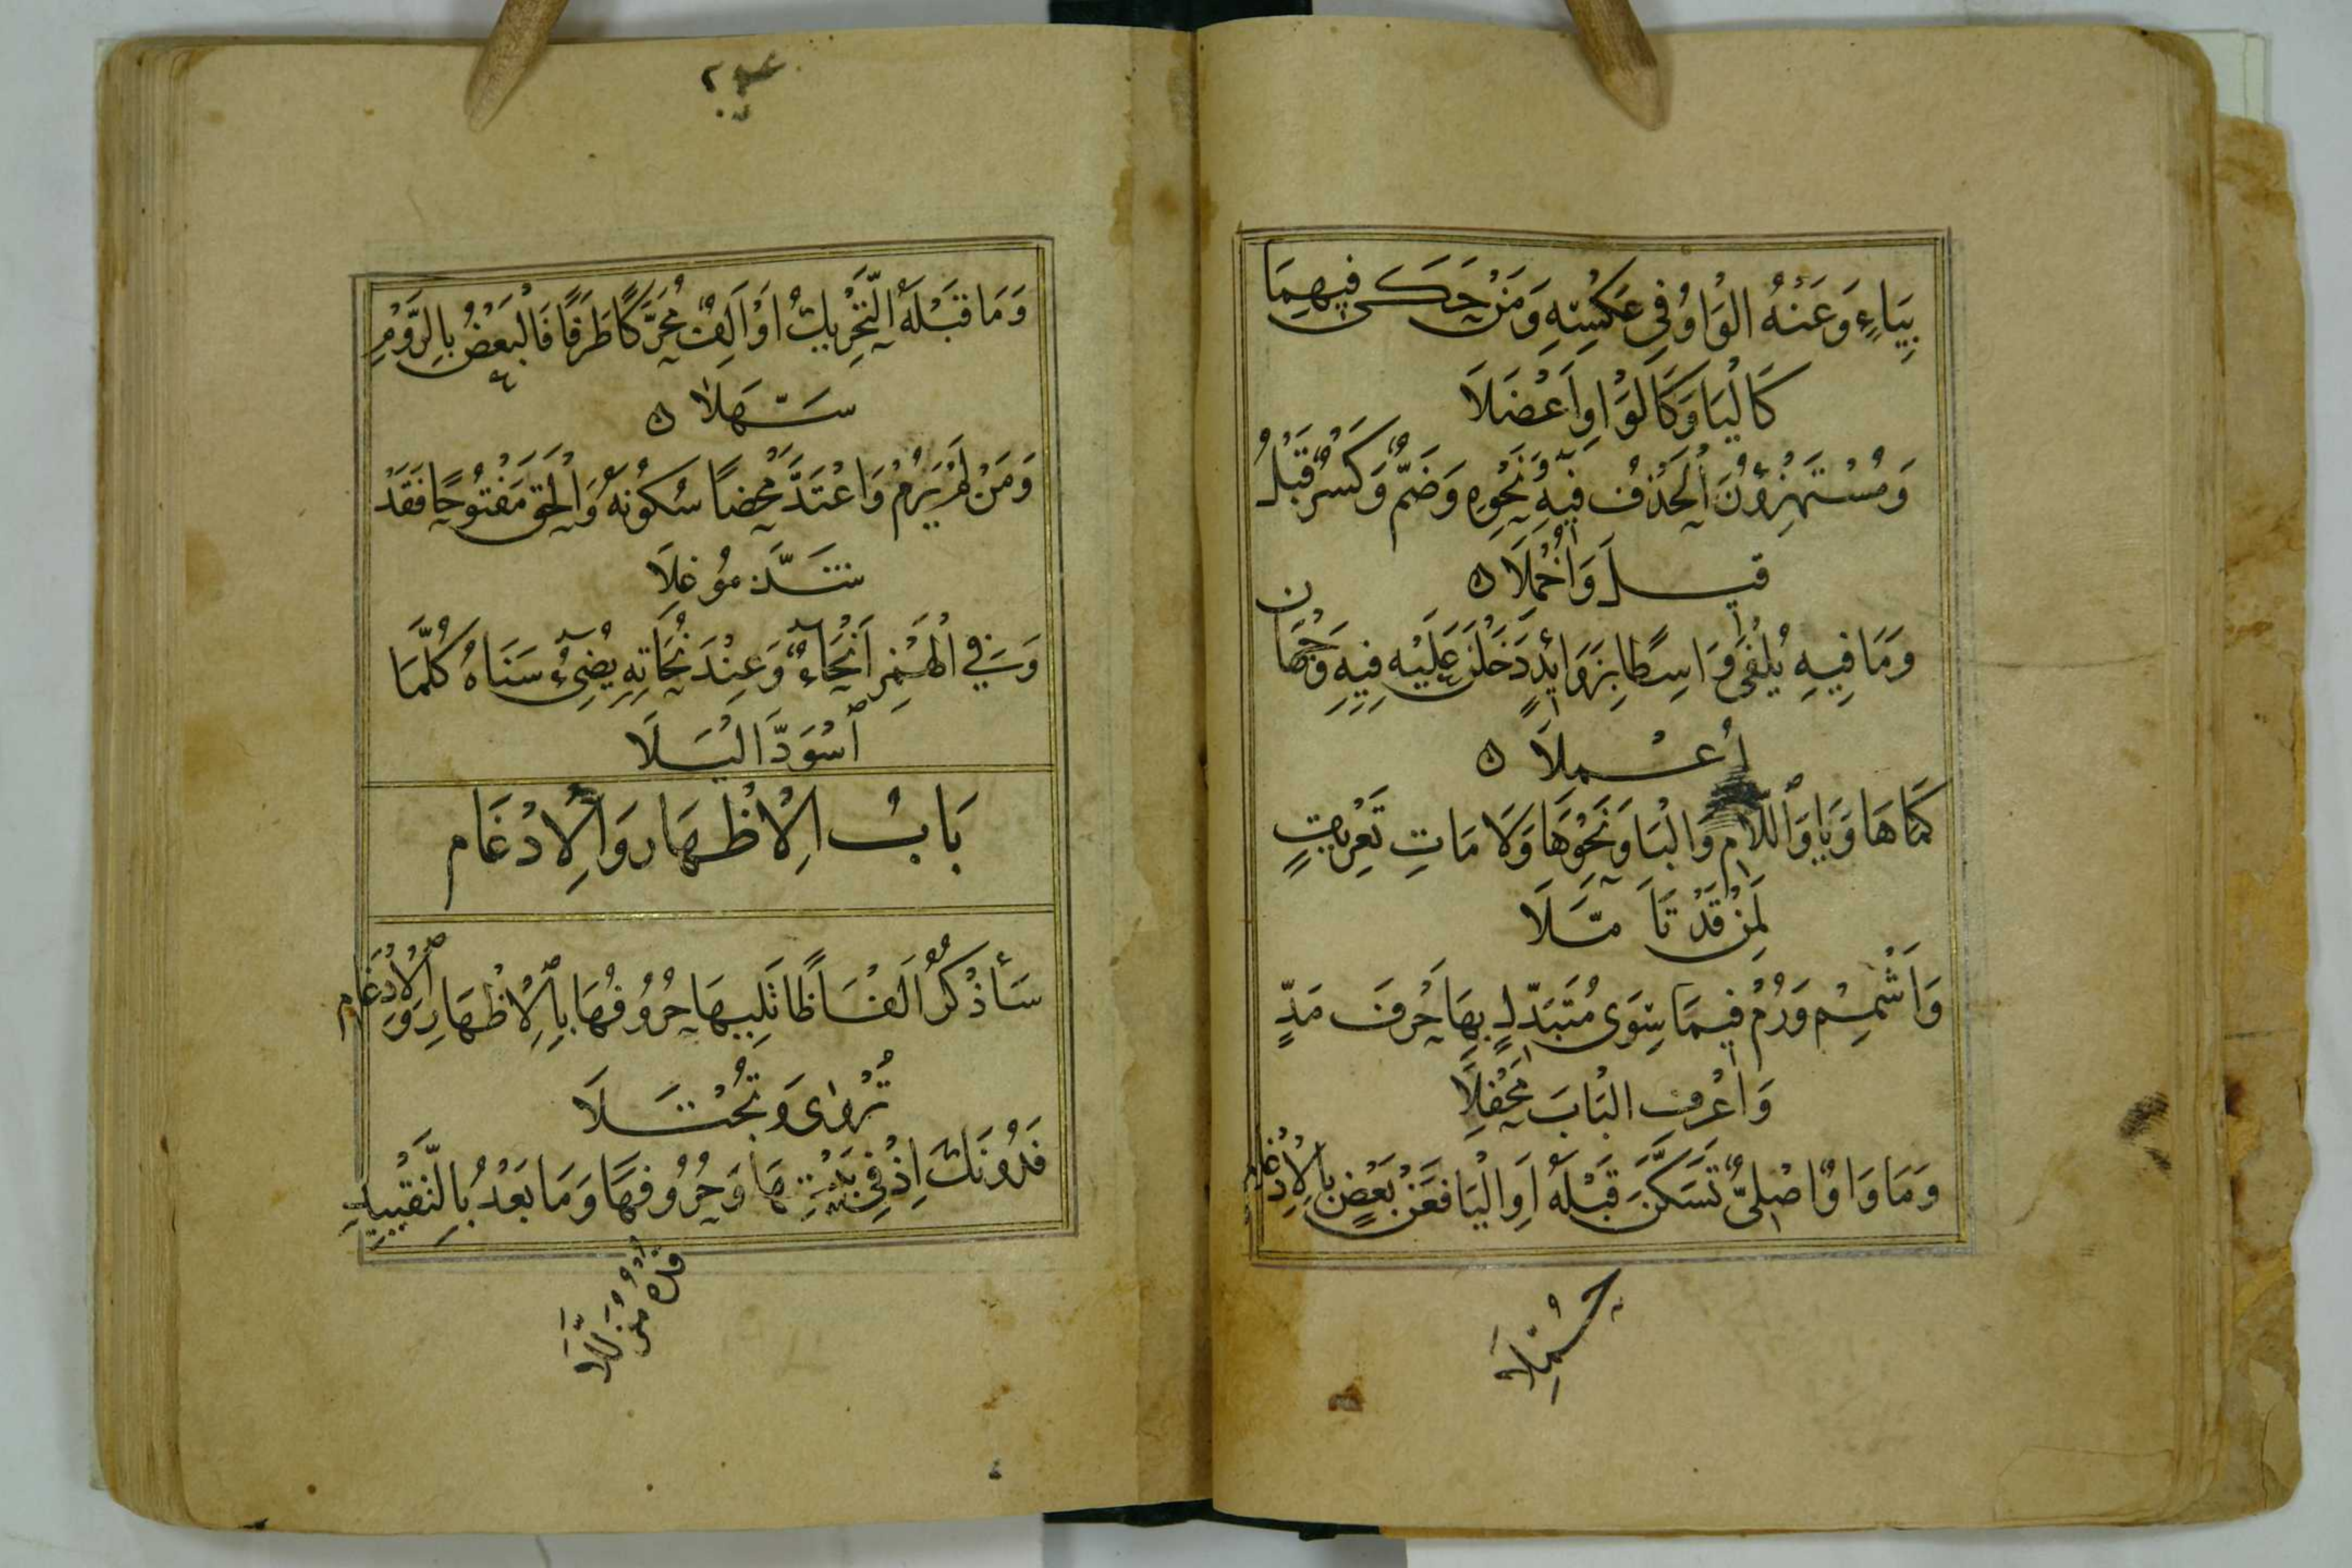 بِيَاءٍ وَعَنْهُ الْوَاوُ فِي عَكْسِهِ وَمَنْ حَكَى فِيهِمَا
كَالْيَا وَكَالْوَاوِ أَعْضَلَا
وَمُسْتَهْزِؤُنَ الْحَذْفُ فِيهِ وَنَحْوِهِ وَضَمٌّ وَكَسْرٌ قَبْلُ
قِيلَ وَأُخْمِلَا
وَمَا فِيهِ يُلْفَى وَاسِطًا بِزَوَائِدٍ دَخَلْنَ عَلَيْهِ فِيهِ وَجْهَانِ
أُعْمِلَا
كَمَا هَا وَيَا وَاللَّامِ وَالْبَا وَنَحْوِهَا وَلَامَاتِ تَعْرِيفٍ
لِمَنْ قَدْ تَأَمَّلَا
وَأَشْمِمْ وَرُمْ فِيمَا سِوَى مُتَبَدِّلٍ بِهَا حَرْفَ مَدٍّ
وَاعْرِفِ الْبَابَ مَحْفِلَا
وَمَا وَاوٌ اصْلِيٌّ تَسَكَّنَ قَبْلَهُ أَوِ الْيَا فَعَنْ بَعْضٍ بِالْإِدْغَامِ
حُمِّلَا
وَمَا قَبْلَهُ التَّحْرِيكُ أَوْ أَلِفٌ مُحَرَّكًا طَرَفًا فَالْبَعْضُ بِالرَّوْمِ
سَهَّلَا
وَمَنْ لَمْ يَرُمْ وَاعْتَدَّ مَحْضًا سُكُونَهُ وَأَلْحَقَ مَفْتُوحًا فَقَدْ
شَذَّ مُوغِلَا
وَفِي الْهَمْزِ أَنْحَاءٌ وَعِنْدَ نُحَاتِهِ يُضِيءُ سَنَاهُ كُلَّمَا
اسْوَدَّ أَلْيَلَا
بَابُ الْإِظْهَارِ وَالْإِدْغَامِ
سَأَذْكُرُ أَلْفَاظًا تَلِيهَا حُرُوفُهَا بِالْإِظْهَارِ وَالْإِدْغَامِ
تُرْوَى وَتُجْتَلَا
فَدُونَكَ إِذْ فِي بَيْتِهَا وَحُرُوفَهَا وَمَا بَعْدُ بِالتَّقْيِيدِ
قُدْهُ مُذَلَّلَا